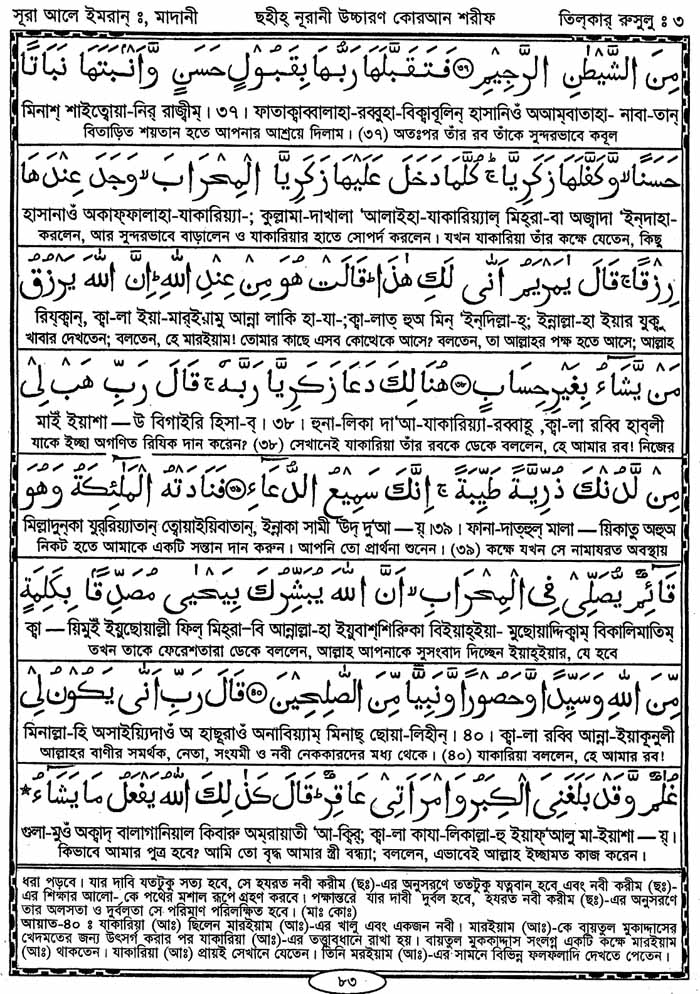 সূরা আলে ইমরান্ ঃ, মাদানী ছহীহ্ নূরানী উচ্চারণ কোরআন শরীফ তিল্কার্ রুসুলু ঃ ৩
مِنَ الشَّيْطٰنِ الرَّجِيْمِ ۝۳۶ فَتَقَبَّلَهَا رَبُّهَا بِقَبُوْلٍ حَسَنٍ وَّاَنْۢبَتَهَا نَبَاتًا
মিনাশ্ শাইত্বোয়া-নির্ রাজ্বীম্। ৩৭। ফাতাক্বাব্বালাহা-রব্বুহা-বিক্বাবূলিন্ হাসানিওঁ অআম্বাতাহা- নাবা-তান্
বিতাড়িত শয়তান হতে আপনার আশ্রয়ে দিলাম। (৩৭) অতঃপর তাঁর রব তাঁকে সুন্দরভাবে কবূল
حَسَنًا ۙ وَّكَفَّلَهَا زَكَرِيَّا ۚ كُلَّمَا دَخَلَ عَلَيْهَا زَكَرِيَّا الْمِحْرَابَ ۙ وَجَدَ عِنْدَهَا
হাসানাওঁ অকাফ্ফালাহা-যাকারিয়্যা-; কুল্লামা-দাখালা 'আলাইহা-যাকারিয়্যাল্ মিহ্রা-বা অজ্বাদা 'ইন্দাহা-
করলেন, আর সুন্দরভাবে বাড়ালেন ও যাকারিয়ার হাতে সোপর্দ করলেন। যখন যাকারিয়া তাঁর কক্ষে যেতেন, কিছু
رِزْقًا ۚ قَالَ يٰمَرْيَمُ اَنّٰى لَكِ هٰذَا ؕ قَالَتْ هُوَ مِنْ عِنْدِ اللّٰهِ ؕ اِنَّ اللّٰهَ يَرْزُقُ
রিয্ক্বান্, ক্বা-লা ইয়া-মার্ইয়ামু আন্না লাকি হা-যা-;ক্বা-লাত্ হুঅ মিন্ 'ইন্দিল্লা-হ্; ইন্নাল্লা-হা ইয়ার যুক্বু
খাবার দেখতেন; বলতেন, হে মারইয়াম! তোমার কাছে এসব কোত্থেকে আসে? বলতেন, তা আল্লাহর পক্ষ হতে আসে; আল্লাহ
مَنْ يَّشَآءُ بِغَيْرِ حِسَابٍ ۝۳۷ هُنَالِكَ دَعَا زَكَرِيَّا رَبَّهٗ ۚ قَالَ رَبِّ هَبْ لِيْ
মাইঁ ইয়াশা — উ বিগাইরি হিসা-ব্। ৩৮। হুনা-লিকা দা'আ-যাকারিয়্যা-রব্বাহূ ,ক্বা-লা রব্বি হাব্লী
যাকে ইচ্ছা অগণিত রিযিক দান করেন? (৩৮) সেখানেই যাকারিয়া তাঁর রবকে ডেকে বললেন, হে আমার রব! নিজের
مِنْ لَّدُنْكَ ذُرِّيَّةً طَيِّبَةً ۚ اِنَّكَ سَمِيْعُ الدُّعَآءِ ۝۳۸ فَنَادَتْهُ الْمَلٰٓئِكَةُ وَهُوَ
মিল্লাদুন্কা যুর্রিয়্যাতান্ ত্বোয়াইয়িবাতান্, ইন্নাকা সামী 'উদ্ দু'আ — য়্।৩৯। ফানা-দাত্হুল্ মালা — য়িকাতু অহুঅ
নিকট হতে আমাকে একটি সন্তান দান করুন। আপনি তো প্রার্থনা শুনেন। (৩৯) কক্ষে যখন সে নামাযরত অবস্থায়
قَآئِمٌ يُّصَلِّيْ فِى الْمِحْرَابِ ۙ اَنَّ اللّٰهَ يُبَشِّرُكَ بِيَحْيٰى مُصَدِّقًۢا بِكَلِمَةٍ
ক্বা — য়িমুইঁ ইয়ুছোয়াল্লী ফিল্ মিহ্রা–বি আন্নাল্লা-হা ইয়ুবাশ্শিরুকা বিইয়াহ্ইয়া- মুছোয়াদ্দিক্বাম্ বিকালিমাতিম্
তখন তাকে ফেরেশতারা ডেকে বললেন, আল্লাহ আপনাকে সুসংবাদ দিচ্ছেন ইয়াহ্ইয়ার, যে হবে
مِّنَ اللّٰهِ وَسَيِّدًا وَّحَصُوْرًا وَّنَبِيًّا مِّنَ الصّٰلِحِيْنَ ۝۳۹ قَالَ رَبِّ اَنّٰى يَكُوْنُ لِيْ
মিনাল্লা-হি অসাইয়্যিদাওঁ অ হাছূরাওঁ অনাবিয়্যাম্ মিনাছ্ ছোয়া-লিহীন্। ৪০। ক্বা-লা রব্বি আন্না-ইয়াকূনুলী
আল্লাহর বাণীর সমর্থক, নেতা, সংযমী ও নবী নেককারদের মধ্য থেকে। (৪০) যাকারিয়া বললেন, হে আমার রব!
غُلٰمٌ وَّقَدْ بَلَغَنِيَ الْكِبَرُ وَامْرَاَتِيْ عَاقِرٌ ؕ قَالَ كَذٰلِكَ اللّٰهُ يَفْعَلُ مَا يَشَآءُ *
গুলা-মুওঁ অক্বাদ্ বালাগানিয়াল কিবারু অম্রায়াতী 'আ-ক্বির্; ক্বা-লা কাযা-লিকাল্লা-হু ইয়াফ্'আলু মা-ইয়াশা — য়্।
কিভাবে আমার পুত্র হবে? আমি তো বৃদ্ধ আমার স্ত্রী বন্ধ্যা; বললেন, এভাবেই আল্লাহ ইচ্ছামত কাজ করেন।
ধরা পড়বে। যার দাবি যতটুকু সত্য হবে, সে হযরত নবী করীম (ছঃ)-এর অনুসরণে ততটুকু যত্নবান হবে এবং নবী করীম (ছঃ)-
এর শিক্ষার আলো- কে পথের মশাল রূপে গ্রহণ করবে। পক্ষান্তরে যার দাবী দুর্বল হবে, হযরত নবী করীম (ছঃ)-এর অনুসরণে
তার অলসতা ও দুর্বলতা সে পরিমাণ পরিলক্ষিত হবে। (মাঃ কোঃ)
আয়াত-৪০ ঃ যাকারিয়া (আঃ) ছিলেন মারইয়াম (আঃ)-এর খালু এবং একজন নবী। মারইয়াম (আঃ)-কে বায়তুল মুকাদ্দাসের
খেদমতের জন্য উৎসর্গ করার পর যাকারিয়া (আঃ)-এর তত্ত্বাবধানে রাখা হয়। বায়তুল মুকাদ্দাস সংলগ্ন একটি কক্ষে মারইয়াম
(আঃ) থাকতেন। যাকারিয়া (আঃ) প্রায়ই সেখানে যেতেন। তিনি মরইয়াম (আঃ)-এর সামনে বিভিন্ন ফলফলাদি দেখতে পেতেন।
৮৩